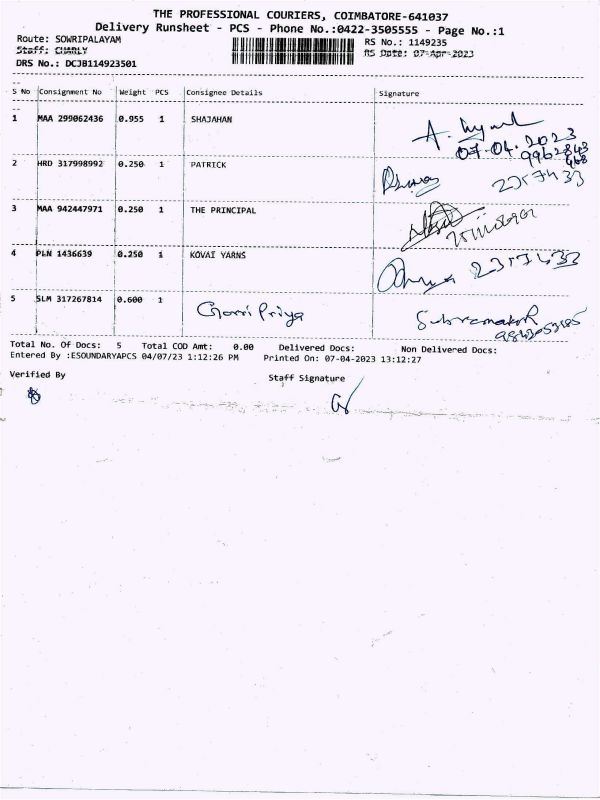 THE PROFESSIONAL COURIERS, COIMBATORE-641037
Delivery Runsheet - PCS - Phone No.:0422-3505555 - Page No.:1
Route: SOWRIPALAYAM
RS No.: 1149235
Staff: CHARLY
RS Date: 07-Apr-2023
DRS No.: DCJB114923501
S No Consignment No Weight PCS Consignee Details Signature
1 MAA 299062436 0.955 1 SHAJAHAN
07.04.2023
2 HRD 317998992 0.250 1 PATRICK
3 MAA 942447971 0.250 1 THE PRINCIPAL
4 PLN 1436639 0.250 1 KOVAI YARNS
5 SLM 317267814 0.600 1 Gowri Priya
Total No. Of Docs: 5 Total COD Amt: 0.00 Delivered Docs: Non Delivered Docs:
Entered By :ESOUNDARYAPCS 04/07/23 1:12:26 PM Printed On: 07-04-2023 13:12:27
Verified By
Staff Signature